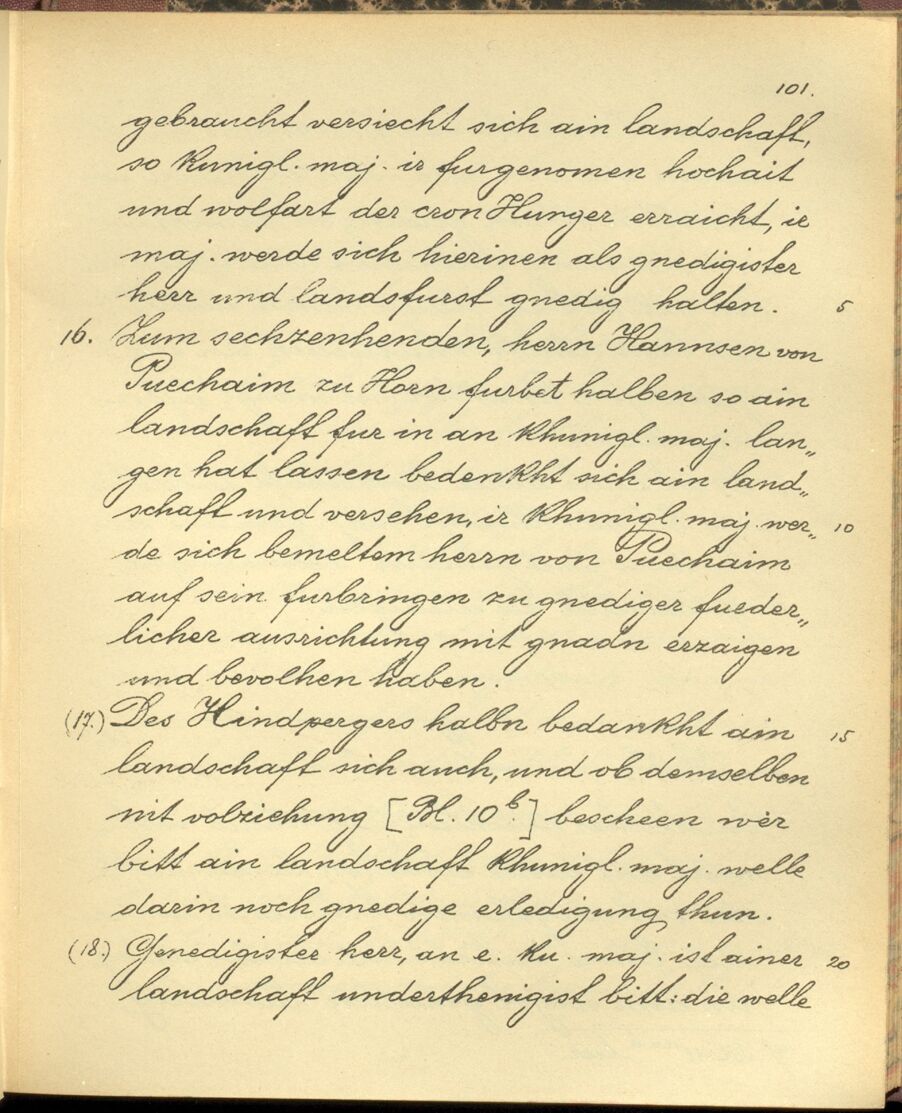 101.
gebraucht versiecht sich ain landschaft,
so kunigl. maj. ir furgenomen hochait
und wolfart der cron Hunger erraicht, ir
maj. werde sich hierinen als gnedigister
herr und landsfurst gnedig halten. 5
16. Zum sechzenhenden, herrn Hannsen von
Puechaim zu Horn furbet halben so ain
landschaft fur in an khunigl. maj. lan„
gen hat lassen bedenkht sich ain land„
schaft und versehen, ir khunigl. maj. wer„ 10
de sich bemeltem herrn von Puechaim
auf sein furbringen zu gnediger fueder„
licher ausrichtung mit gnadn erzaigen
und bevolhen haben.
(17.) Des Hindpergers halbn bedankht ain 15
landschaft sich auch, und ob demselben
nit volziehung [Bl. 10b.] bescheen wer
bitt ain landschaft khunigl. maj. welle
darin noch gnedige erledigung thun.
(18.) Genedigister herr, an e. ku. maj. ist ainer 20
landschaft underthenigist bitt: die welle